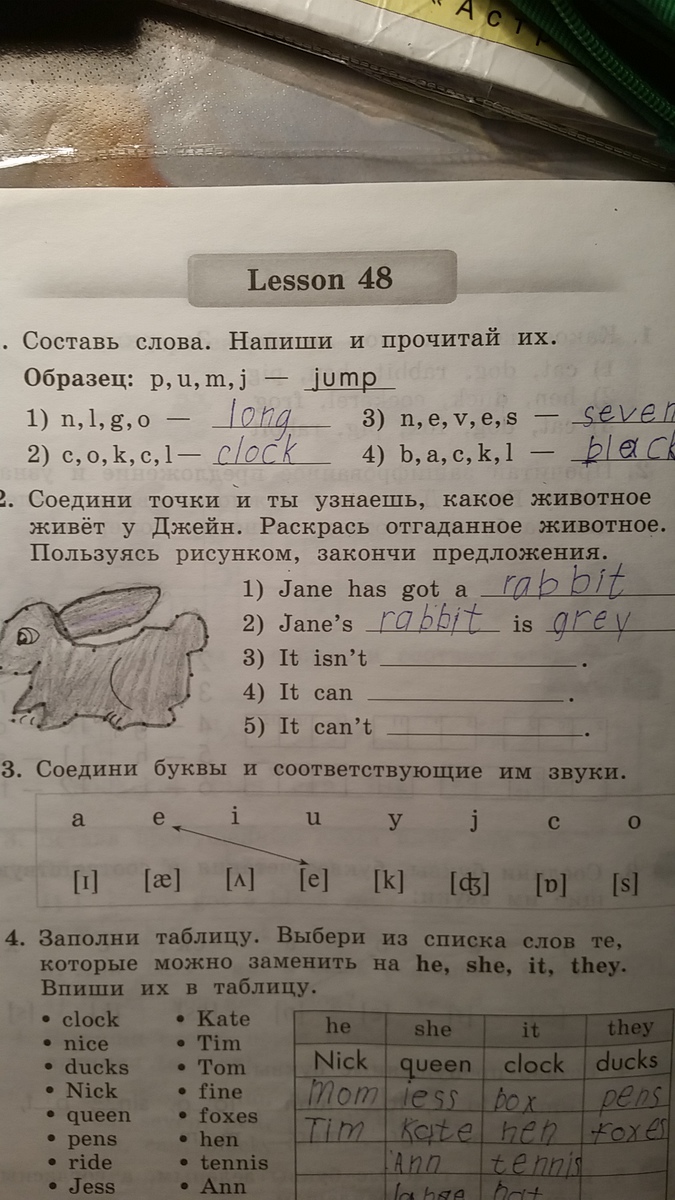 « Аст
Lesson 48
. Составь слова. Напиши и прочитай их.
Образец: p, u, m, j — jump
1) n, l, g, o — long 3) n, e, v, e, s — seven
2) c, o, k, c, l — clock 4) b, a, c, k, l — black
2. Соедини точки и ты узнаешь, какое животное
живёт у Джейн. Раскрась отгаданное животное.
Пользуясь рисунком, закончи предложения.
1) Jane has got a rabbit
2) Jane's rabbit is grey
3) It isn't ____.
4) It can ____.
5) It can't ____.
3. Соедини буквы и соответствующие им звуки.
a e i u y j c o
[ɪ] [æ] [ʌ] [e] [k] [ʤ] [ɒ] [s]
4. Заполни таблицу. Выбери из списка слов те,
которые можно заменить на he, she, it, they.
Впиши их в таблицу.
• clock • Kate
• nice • Tim
• ducks • Tom
• Nick • fine
• queen • foxes
• pens • hen
• ride • tennis
• Jess • Ann
he she it they
Nick queen clock ducks
Mom jess box pens
Tim Kate hen foxes
Ann tennis